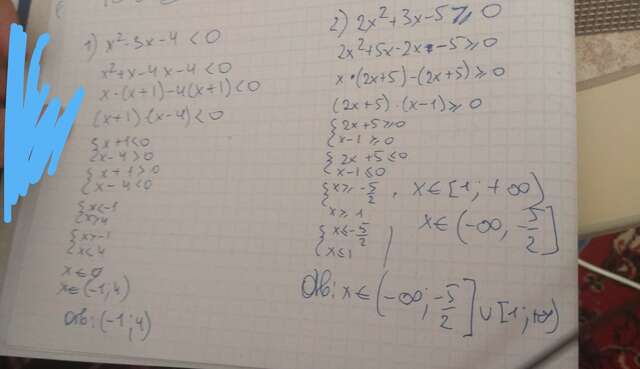 1) x²-3x-4<0
x²+x-4x-4<0
x·(x+1)-4(x+1)<0
(x+1)·(x-4)<0
{x+1<0
{x-4>0
{x+1>0
{x-4<0
{x<-1
{x>4
{x>-1
{x<4
x∈∅
x∈(-1;4)
Отв: (-1;4)
2) 2x²+3x-5≥0
2x²+5x-2x-5≥0
x·(2x+5)-(2x+5)≥0
(2x+5)·(x-1)≥0
{2x+5≥0
{x-1≥0
{2x+5≤0
{x-1≤0
{x≥-5/2, x∈[1;+∞)
{x≥1
{x≤-5/2, x∈(-∞,-5/2]
{x≤1
Отв: x∈(-∞;-5/2]∪[1;+∞)